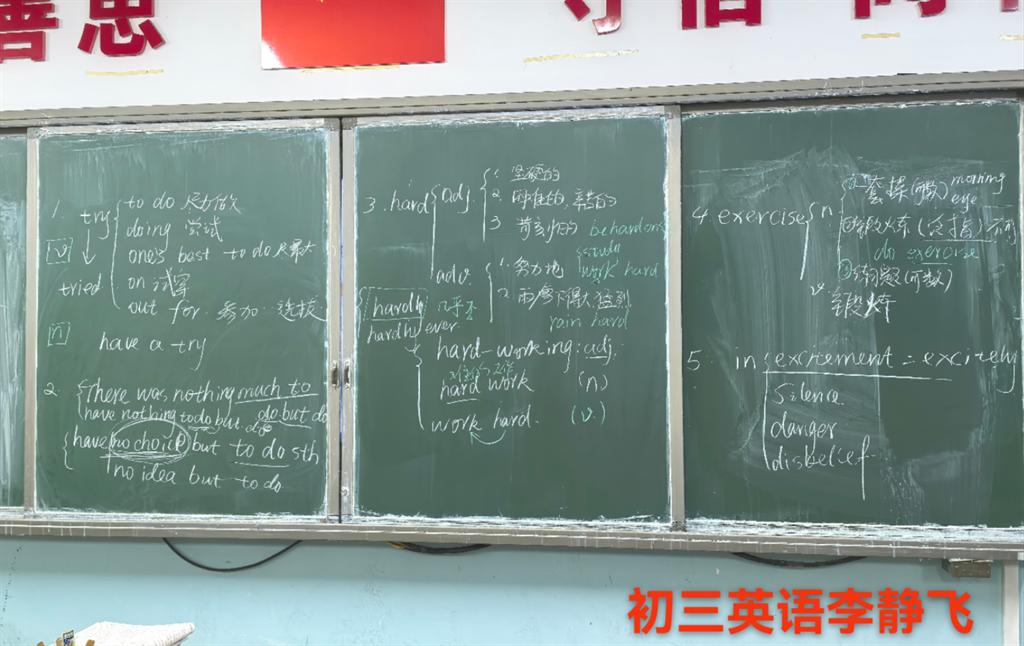 善思 守信
1. try
to do 尽力做
doing 尝试
one's best to do 尽最大
on 试穿
out for 参加…选拔
[v]
tried
[n]
have a try
2. There was nothing much to
have nothing to do but do
do but do
have no choice but to do sth
no idea but to do
3. hard
adj.
1. 坚硬的
2. 困难的, 辛苦的
3 苛刻的 be hard on
adv.
1. 努力地
study
work hard
2. 雨雪下得大
rain hard
hardly 几乎不
hardly ever
hard-working: adj.
hard work (n)
work hard. (v.)
4. exercise
n
套操(可数) morning
eye
锻炼(泛指)不可
do exercise
③练习题(可数)
v. 锻炼
5. in
excitement = excitedly
silence
danger
disbelief
初三英语李静飞